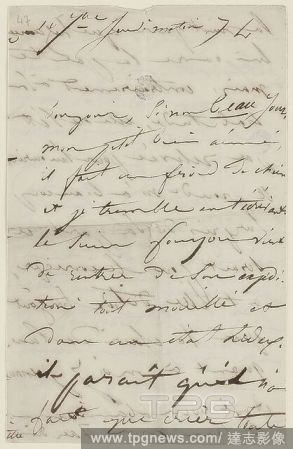 47
7bre Jeudi matin 74
Toujours Sinon beau jour,
mon ptit bien aimé,
il fait un froid de chien
et je tremble en t'écrivant
le Sieur
de rentrer de Son expédi
tion tout mouillé et
dans un état hideux.
il paraît qu'il n'a
fait que crier toute
TPG
www.tpgnews.com/達志影像